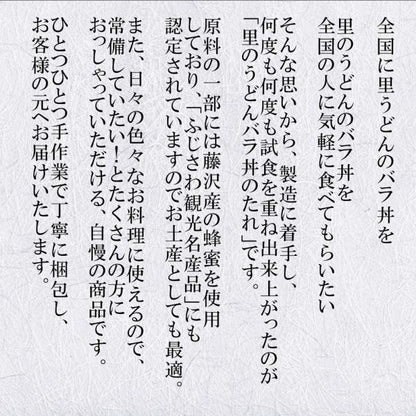 全国に里うどんのバラ丼を
里のうどんのバラ丼を
全国の人に気軽に食べてもらいたい
そんな思いから、製造に着手し、
何度も何度も試食を重ね出来上がったのが
「里のうどんバラ丼のたれ」です。
原料の一部には藤沢産の蜂蜜を使用
しており、「ふじさわ観光名産品」にも
認定されていますのでお土産としても最適。
また、日々の色々なお料理に使えるので、
常備していたい！とたくさんの方に
おっしゃっていただける、自慢の商品です。
ひとつひとつ手作業で丁寧に梱包し、
お客様の元へお届けいたします。